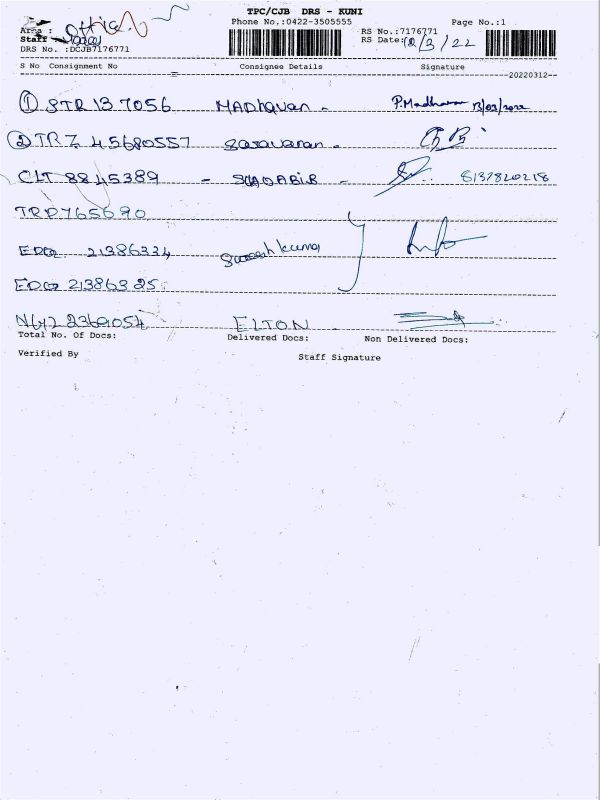 TPC/CJB DRS - KUNI
Phone No.:0422-3505555
Page No.:1
Area : Office.
RS No.:7176771
Staff :
RS Date: 12/3/22
DRS No. :DCJB7176771
S No Consignment No Consignee Details Signature
20220312
① STR 137056 MADhavan - P.Madhavan 13/03/2022
② TRZ 45680557 Saravanan -
CLT 8845389 - SHOABIB - 8137820218
TRP765690
EDQ 21386334 Sureshkumar
EDQ 21386325
2369054 ELTON
Total No. Of Docs: Delivered Docs: Non Delivered Docs:
Verified By Staff Signature